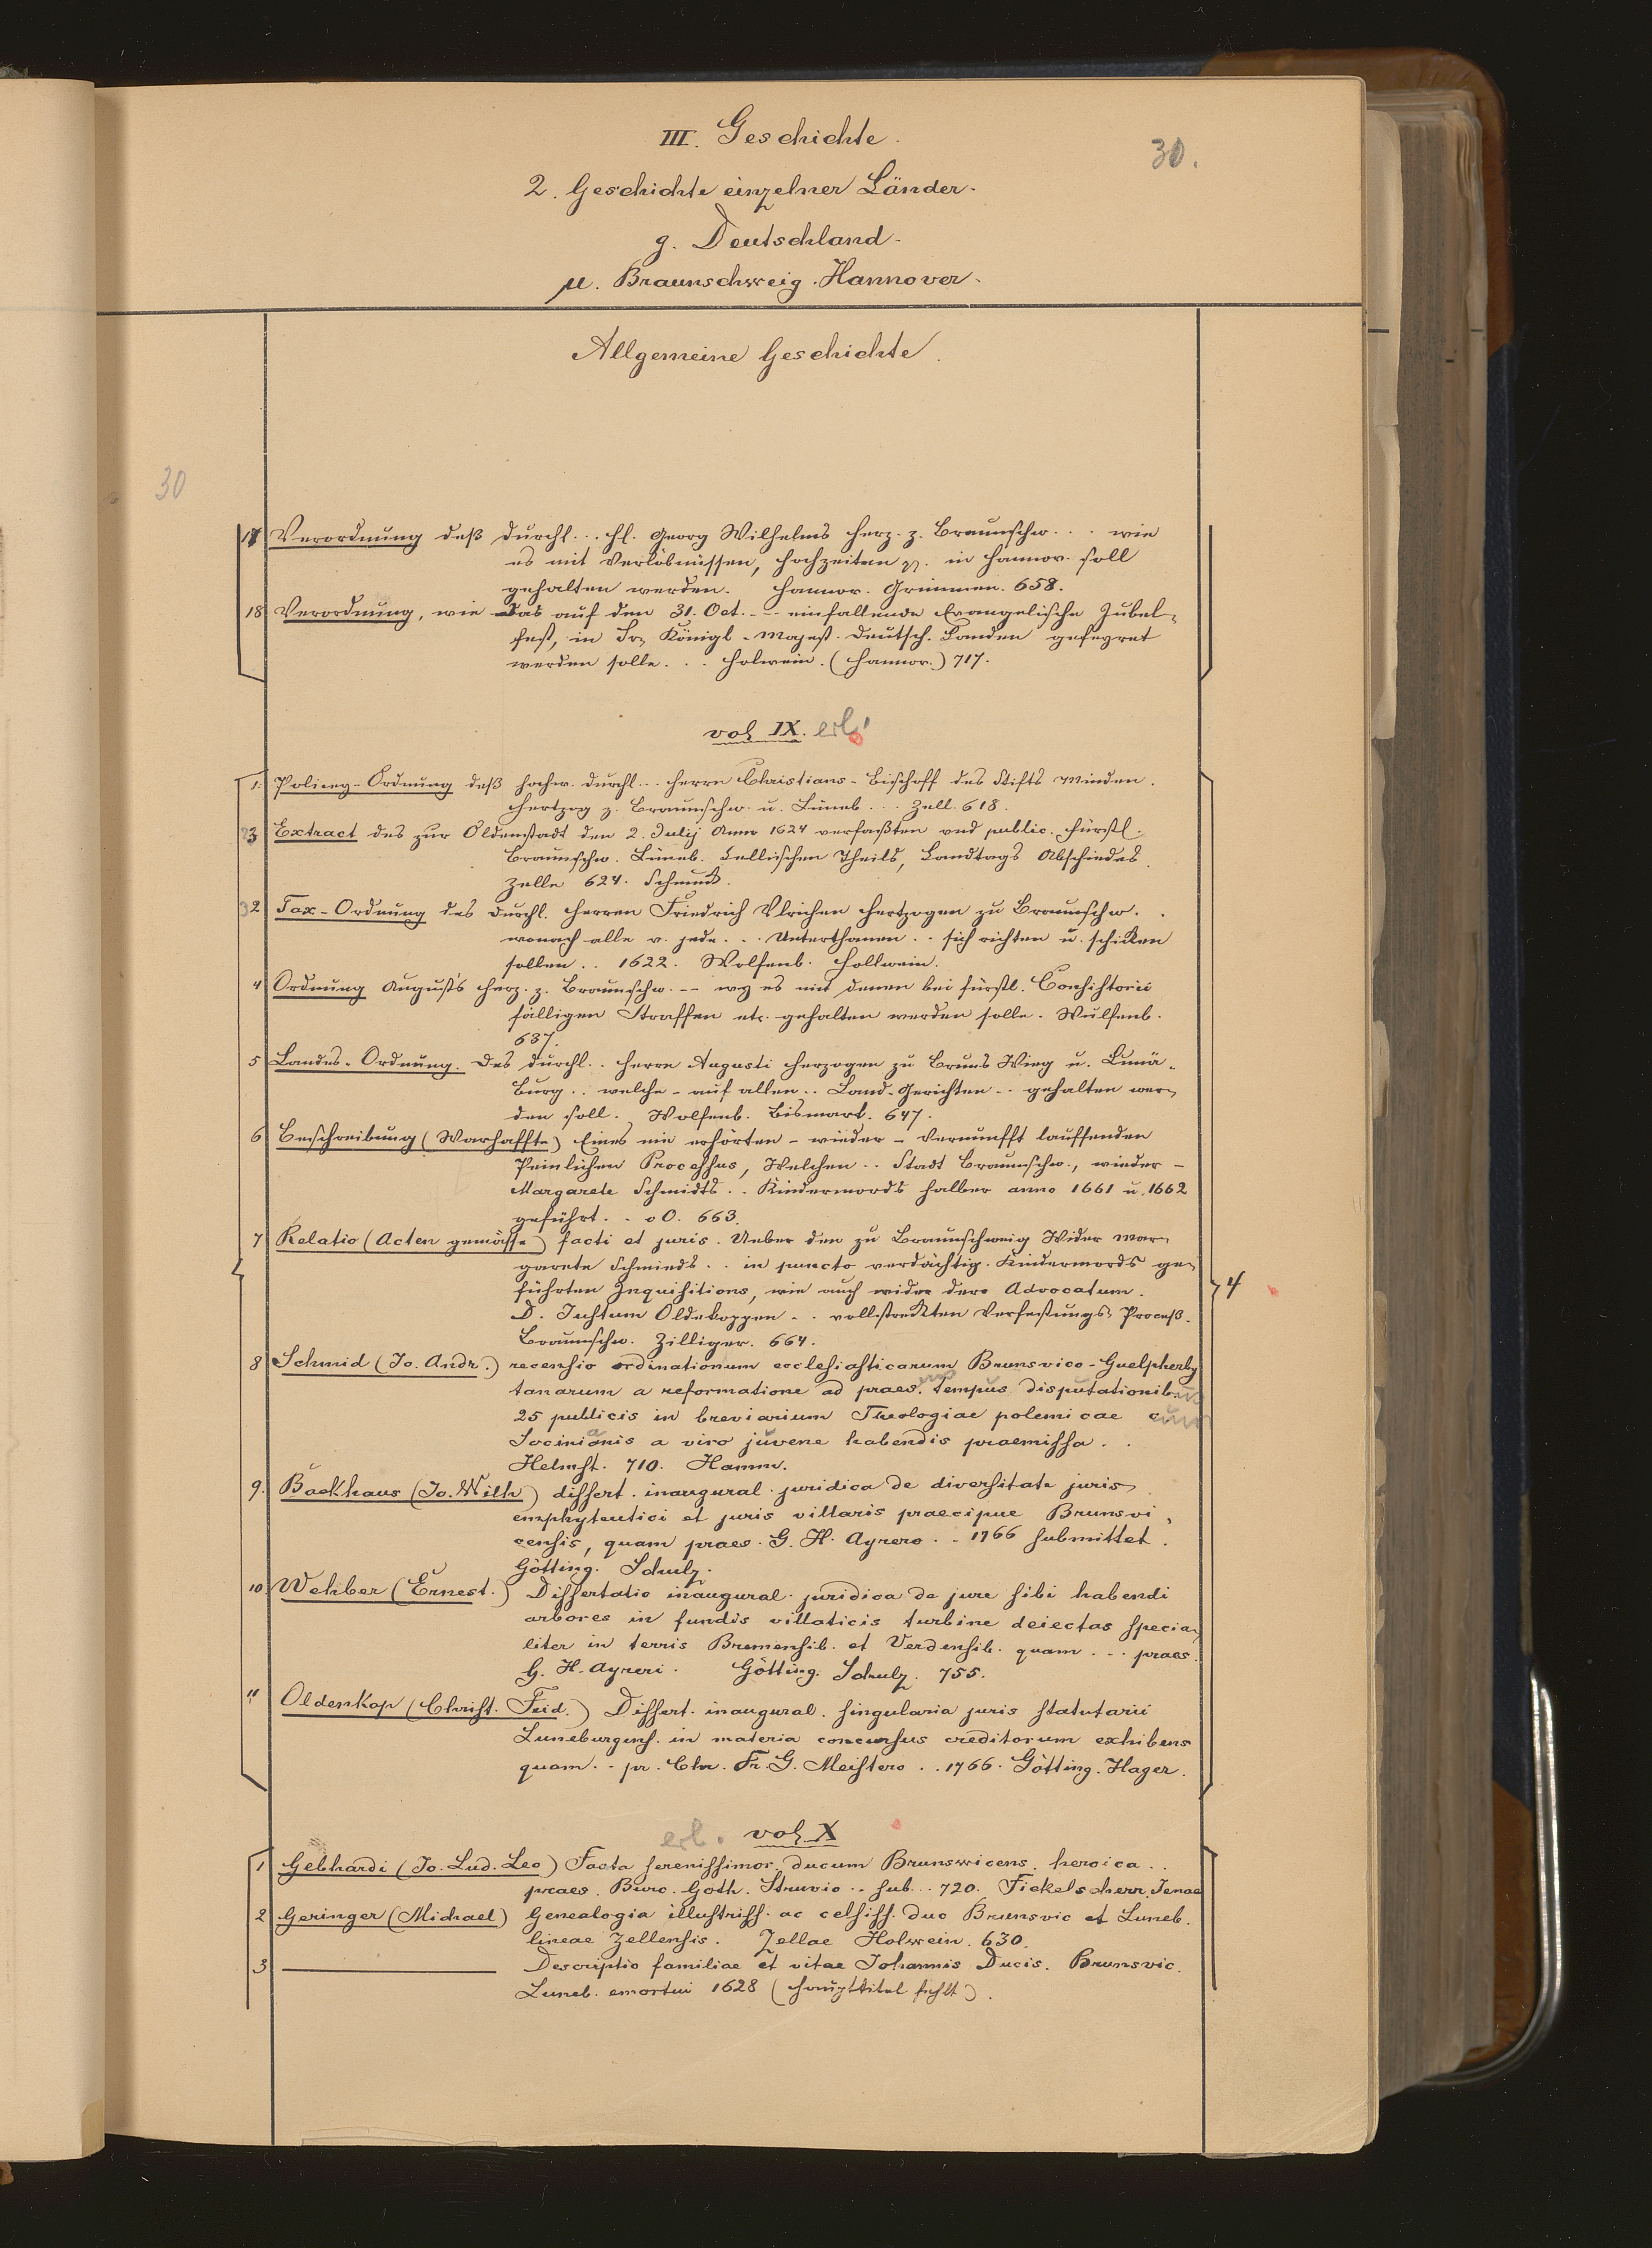 III. Geschichte.
30.
2. Geschichte einzelner Länder.
g. Deutschland.
µ. Braunschweig. Hannover.
Allgemeine Geschichte.
30
17 Verordnung deß Durchl... H. Georg Wilhelms Herz. z. Braunschw... wie
es mit Verlöbnüssen, Hochzeiten pp. in Hannov. soll
gehalten werden. Hannov. Grimmen. 658.
18 Verordnung, wie das auf den 31. Oct. -- einfallende Evangelische Jubel-
fest, in Sr. Königl. Majest. Deutsch. Landen gefeyret
werden solle... Holwein. (Hannov.) 717.
vol IX. erl.
1. Policey-Ordnung deß Hochw. Durchl... Herrn Christians- Bischoff des Stifts Minden.
Hertzog z. Braunschw. u. Lüneb... Zell. 618.
3 Extract des zur Oldenstadt den 2. Julij Anno 1624 verfaßten und public. Fürstl.
Braunschw. Lüneb. Cellischen Theils, Landtags Abschiedes.
Zelle 624. Schmuck.
2 Tax-Ordnung des Durchl. Herren Friedrich Ulrichen Hertzogen zu Braunschw..
wonach alle v. jede... Unterthanen.. sich richten u. schicken
sollen.. 1622. Wolfenb. Hollwein.
4 Ordnung Augusts Herz. z. Braunschw. -- wy es mit denen bei Fürstl. Consistorii
fälligen Straffen etc. gehalten werden solle. Wulfenb.
637.
5 Landes-Ordnung. Des Durchl.. Herrn Augusti Herzogen zu Bruns Wieg u. Lunä-
Burg.. welche - auf allen.. Land-Gerichten.. gehalten wer-
den soll. Wolfenb. Bismark. 647.
6 Beschreibung (Warhaffte) Eines nie erhörten - wieder - Vernunfft lauffenden
Peinlichen Processus, Welchen.. Stadt Braunschw., wieder -
Margarete Schmidts.. Kindermords halber anno 1661 u. 1662
geführt.. oO. 663.
7 Relatio (Acten gemässe) facti et juris. Ueber den zu Braunschweig Wider Mar-
garete Schmieds.. in puncto verdächtig. Kindermords ge-
führten Inquisitions, wie auch wider dero Advocatum.
D. Justum Oldekoppen.. vollstreckten Verfestungs-Proceß.
Braunschw. Zilliger. 664.
4
8 Schmid (Jo. Andr.) recensio ordinationum ecclesiasticarum Brunsvico-Guelpherby
tanarum a reformatione ad praes. tempus disputationib.
25 publicis in breviarium Theologiae polemicae cum
Socinianis a viro juvene habendis praemissa..
Helmst. 710. Hamm.
9. Backhaus (Jo. Wilh) dissert. inaugural. juridica de diversitate juris
emphyteutici et juris villaris praecipue Brunsvi-
censis, quam praes. G. H. Ayrero.. 1766 submittet.
Götting. Schulz.
10 Wehber (Ernest.) Dissertatio inaugural. juridica de jure sibi habendi
arbores in fundis villaticis turbine deiectas specia-
liter in terris Bremensib. et Verdensib. quam... praes.
G. H. Ayreri. Götting. Schulz. 755.
11 Oldenkop (Christ. Frid.) Dissert. inaugural. singularia juris statutarii
Luneburgens. in materia concursus creditorum exhibens
quam.. pr. Chr. Fr. G. Meistero.. 1766. Götting. Hager.
erl. vol. X
1 Gebhardi (Jo. Lud. Leo) Facta serenissimor. ducum Brunswicens. heroica..
praes. Burc. Goth. Struvio.. sub... 720. Fickelscherr. Jenae
2 Geringer (Michael) Genealogia illustriss. ac celsiss. duc Brunsvic et Luneb.
lineae Zellensis. Zellae Holwein. 630.
3 ——— Descriptio familiae et vitae Johannis Ducis. Brunsvic.
Luneb. emortui 1628 (Haupttitel fehlt).